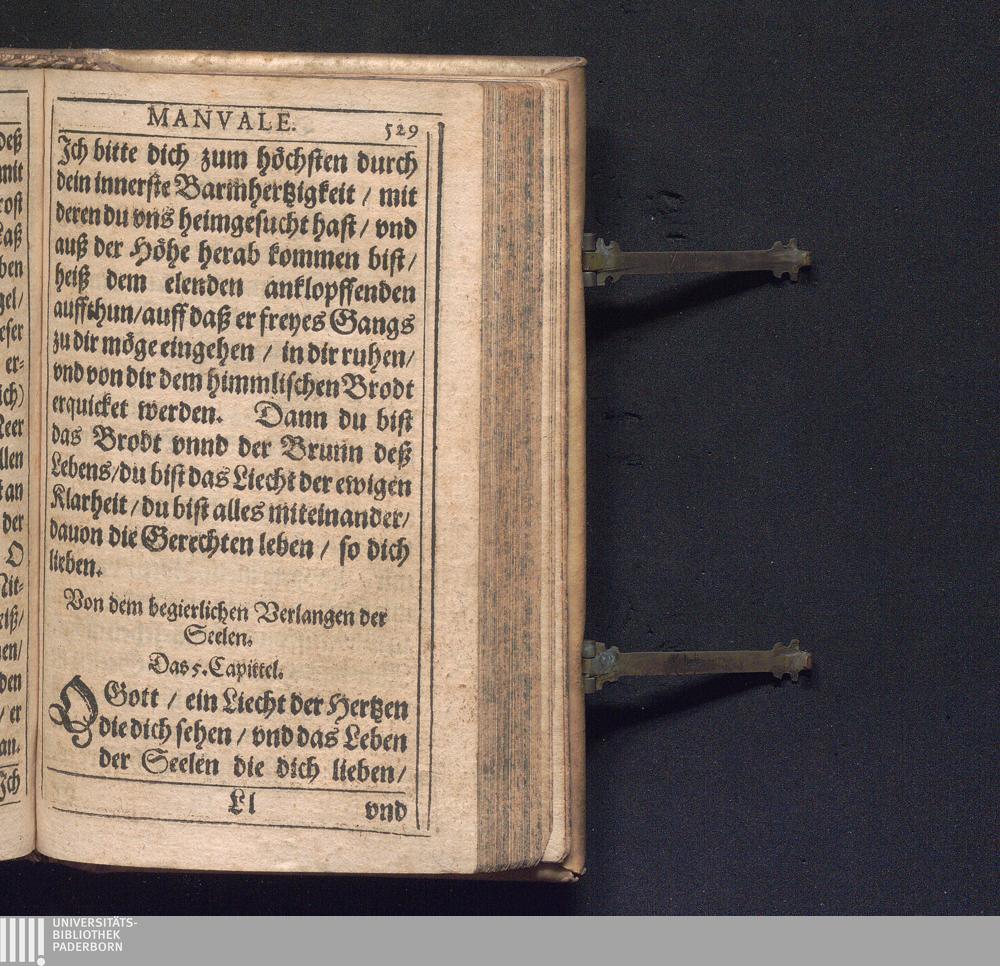 MANVALE. 529
Ich bitte dich zum höchsten durch
dein innerste Barmhertzigkeit / mit
deren du vns heimgesucht hast / vnd
auß der Höhe herab kommen bist /
heiß dem elenden anklopffenden
auffthun / auff daß er freyes Gangs
zu dir möge eingehen / in dir ruhen /
vnd von dir dem himmlischen Brodt
erquicket werden. Dann du bist
das Brodt vnnd der Brunn deß
Lebens / du bist das Liecht der ewigen
Klarheit / du bist alles miteinander /
dauon die Gerechten leben / so dich
lieben.
Von dem begierlichen Verlangen der
Seelen.
Das 5. Capittel.
O Gott / ein Liecht der Hertzen
die dich sehen / vnd das Leben
der Seelen die dich lieben /
Ll vnd
deß
mit
ben
er-
ich)
llen
der
O
den
/ er
an.
Ich
UNIVERSITÄTS-
BIBLIOTHEK
PADERBORN